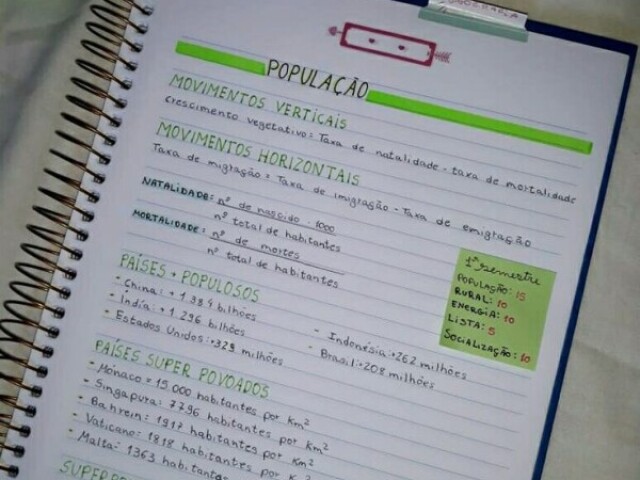 POPULAÇÃO
MOVIMENTOS VERTICAIS
Crescimento vegetativo = Taxa de natalidade - taxa de mortalidade
MOVIMENTOS HORIZONTAIS
Taxa de migração = Taxa de imigração - Taxa de emigração
NATALIDADE: nº de nascido . 1000
nº total de habitantes
MORTALIDADE: nº de mortes
nº total de habitantes
PAÍSES + POPULOSOS
- China: + 1 384 bilhões
- Índia: + 1 296 bilhões
- Estados Unidos: +323 milhões
- Indonésia: +262 milhões
- Brasil: +208 milhões
1º semestre
POPULAÇÃO: 15
RURAL: 10
ENERGIA: 10
LISTA: 5
SOCIALIZAÇÃO: 10
PAÍSES SUPER POVOADOS
- Mônaco = 19.000 habitantes por Km²
- Singapura: 7796 habitantes por Km²
- Bahrein: 1917 habitantes por Km²
- Vaticano: 1818 habitantes por Km²
- Malta: 1363 habitantes